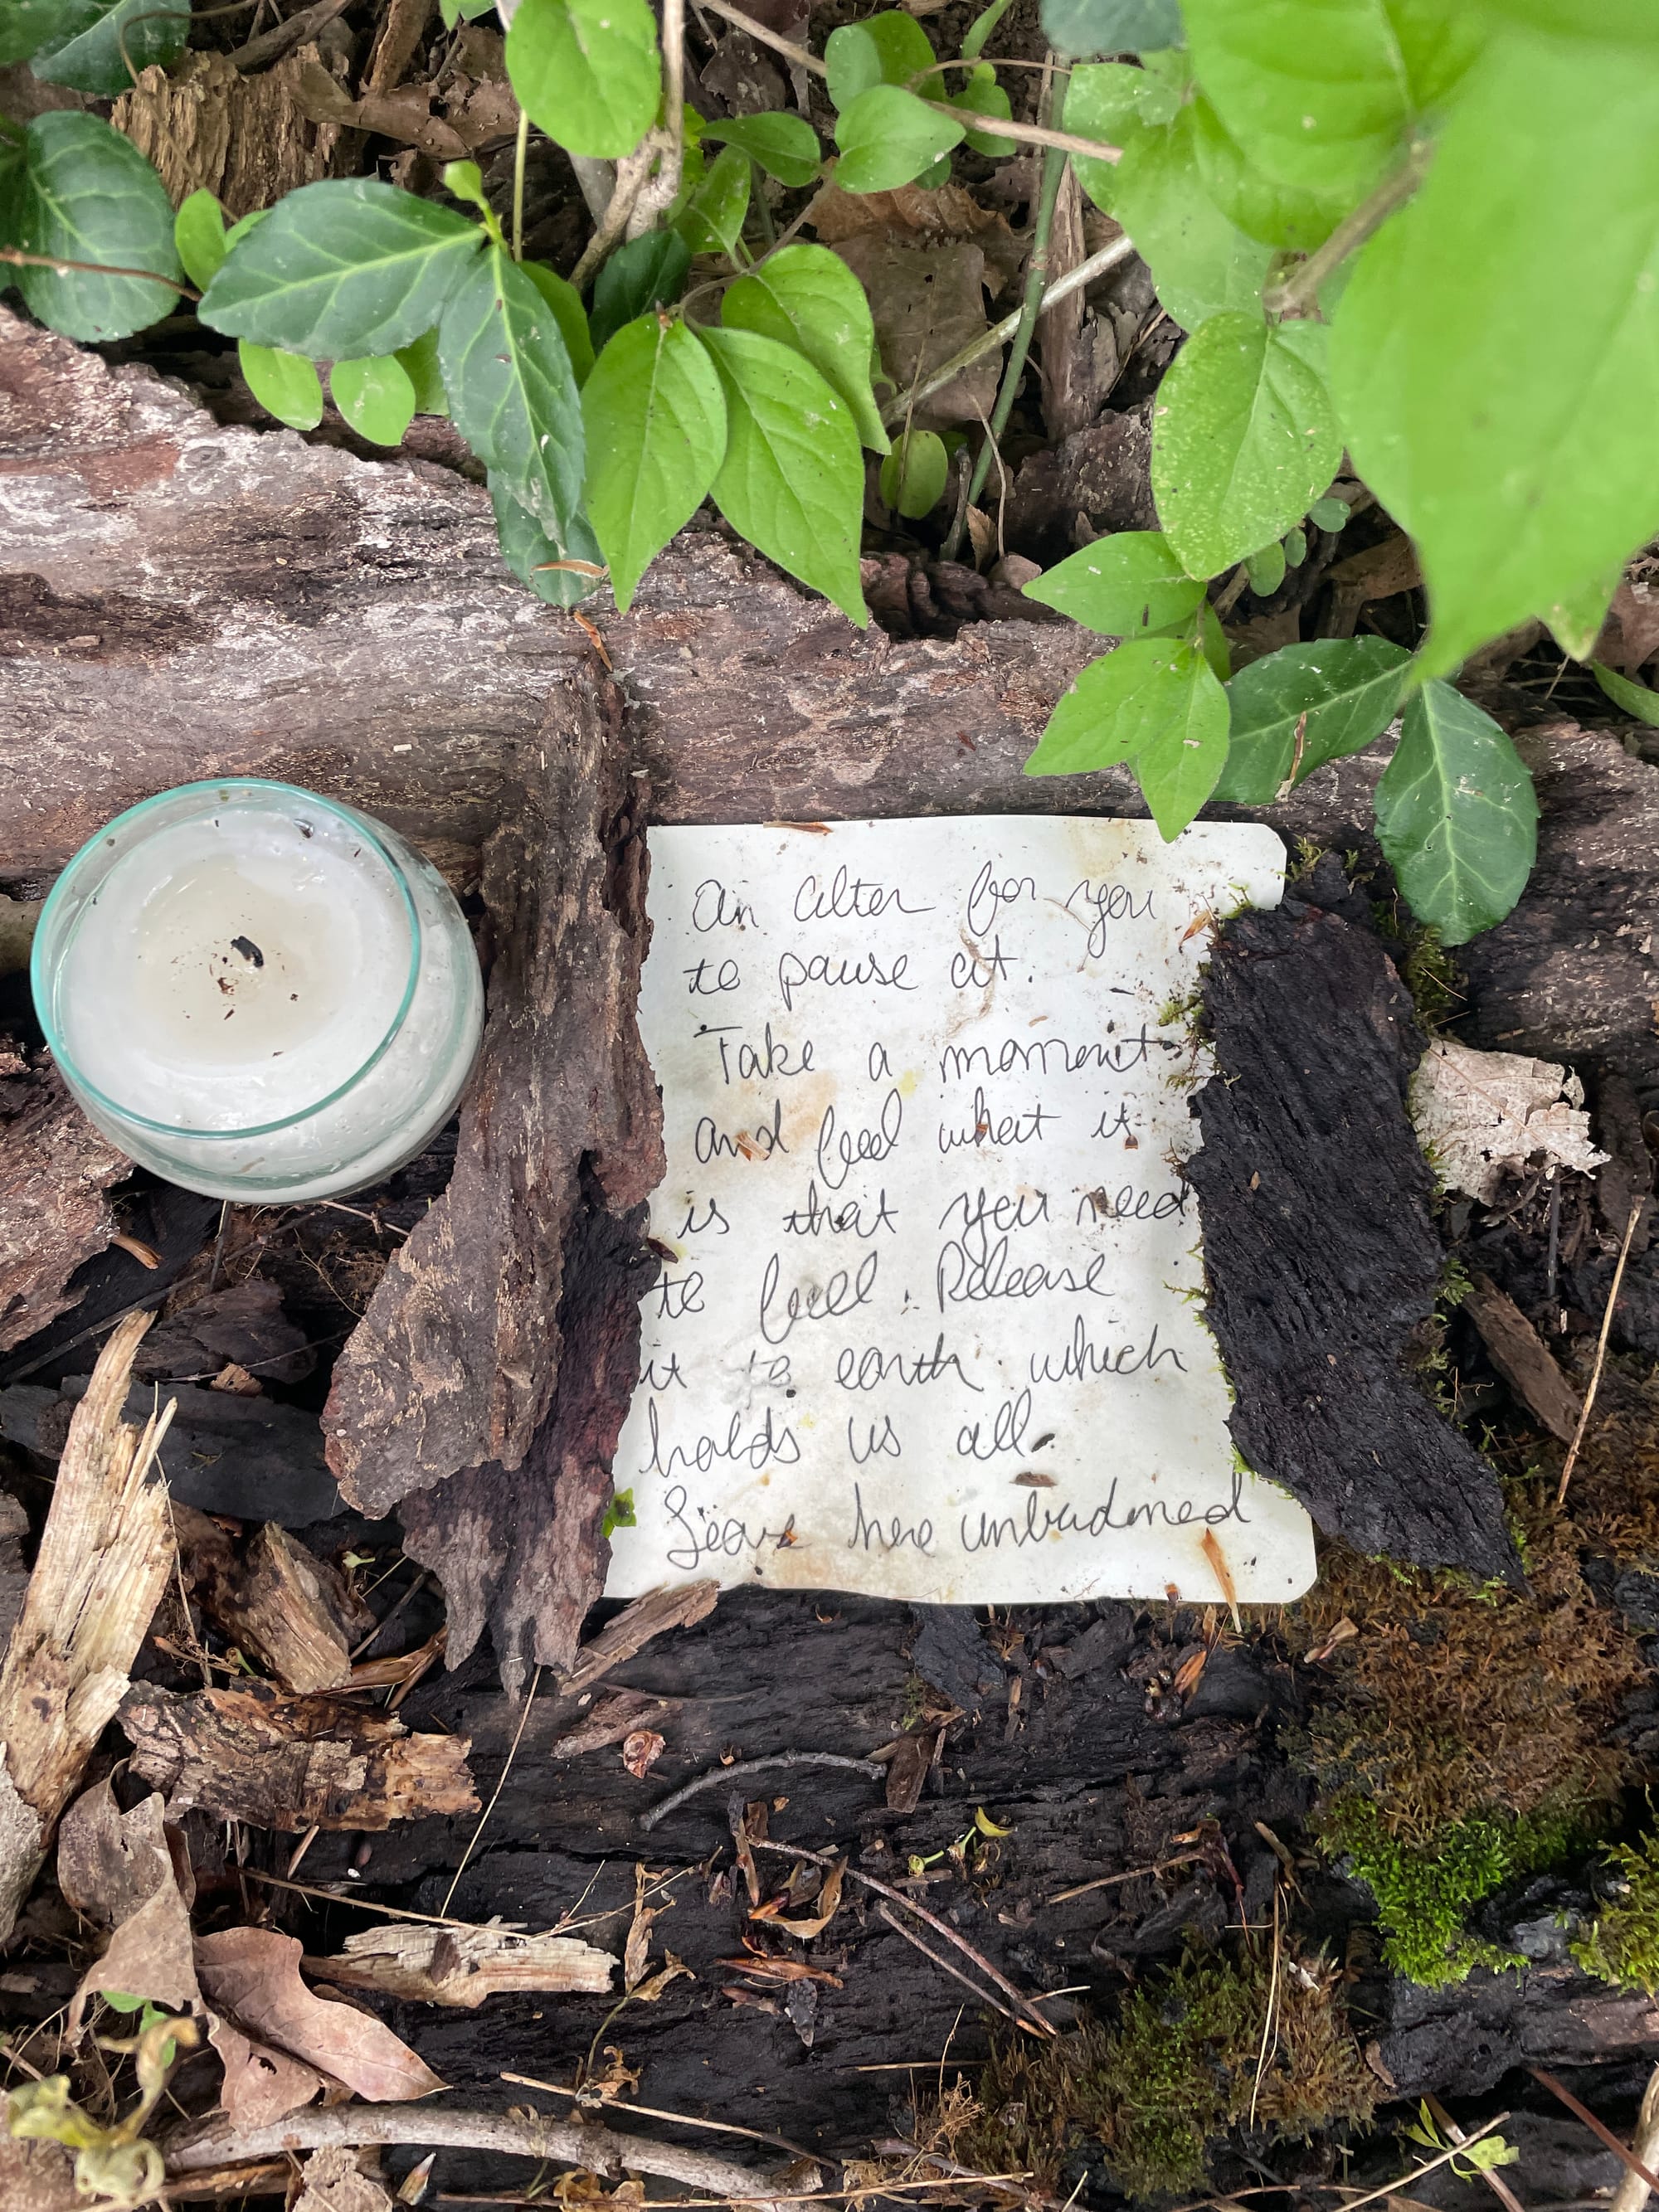 An alter for you
to pause at.
Take a moment
and feel what it
is that you need
to feel. Release
it to earth which
holds us all.
Leave here unburdened